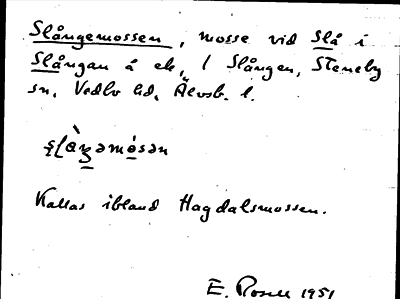 Slångemossen, mosse vid Slå i
Slången å ek, l Slången, Steneby
sn, Vedbo hd, Älvsb. l.
Kallas ibland Hagdalsmossen.
E. Rosell 1951